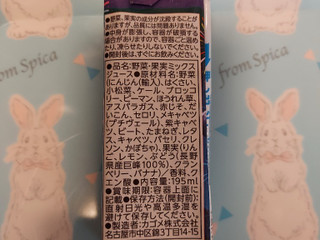 ●野菜、果実の成分が沈殿することが
ありますが、品質には問題ありません。
●中身が膨張し、容器が破損する
場合がありますので、容器ごと温め
たり、凍らせたりしないでください。
●開封後は、すぐにお飲みください。
●品名：野菜・果実ミックス
ジュース●原材料名：野菜
(にんじん(輸入)、はくさい、
小松菜、ケール、ブロッコ
リー、ピーマン、ほうれん草、
アスパラガス、赤じそ、だ
いこん、セロリ、メキャベツ
(プチヴェール)、紫キャベ
ツ、ビート、たまねぎ、レタ
ス、キャベツ、パセリ、クレ
ソン、かぼちゃ)、果実(りん
ご、レモン、ぶどう(長野
県産巨峰100%)、グァバ、
ベリー、バナナ)／香料、ク
エン酸●内容量：195ml
●賞味期限：容器上面に
記載●保存方法(開封前)：
直射日光や高温多湿を
避けて保存してください。
●製造者：カゴメ株式会社
名古屋市中区錦3丁目14-15
from Spica
from Spica